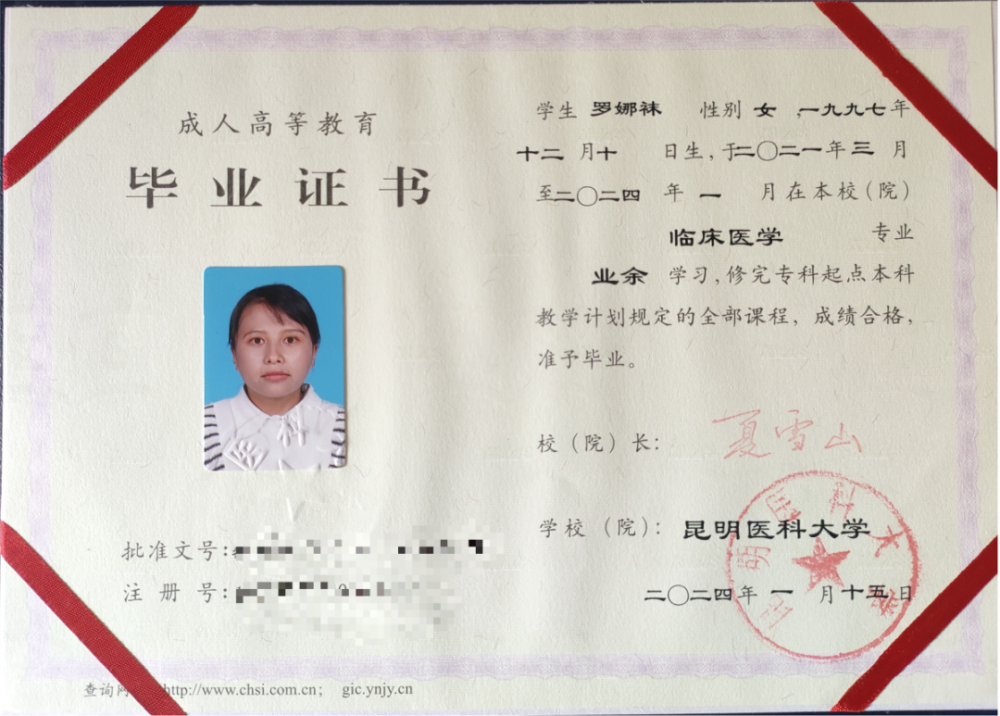 成人高等教育
毕业证书
批准文号:
注册号:
查询网 http://www.chsi.com.cn; gic.ynjy.cn
学生 罗娜袜 性别 女 ,一九九七年
十二 月十 日生,于二〇二一年三 月
至二〇二四 年 一 月在本校(院)
临床医学 专业
业余 学习,修完专科起点本科
教学计划规定的全部课程,成绩合格,
准予毕业。
校(院)长: 夏雪山
学校(院): 昆明医科大学
二〇二四年 一 月十五日
昆明医科大学